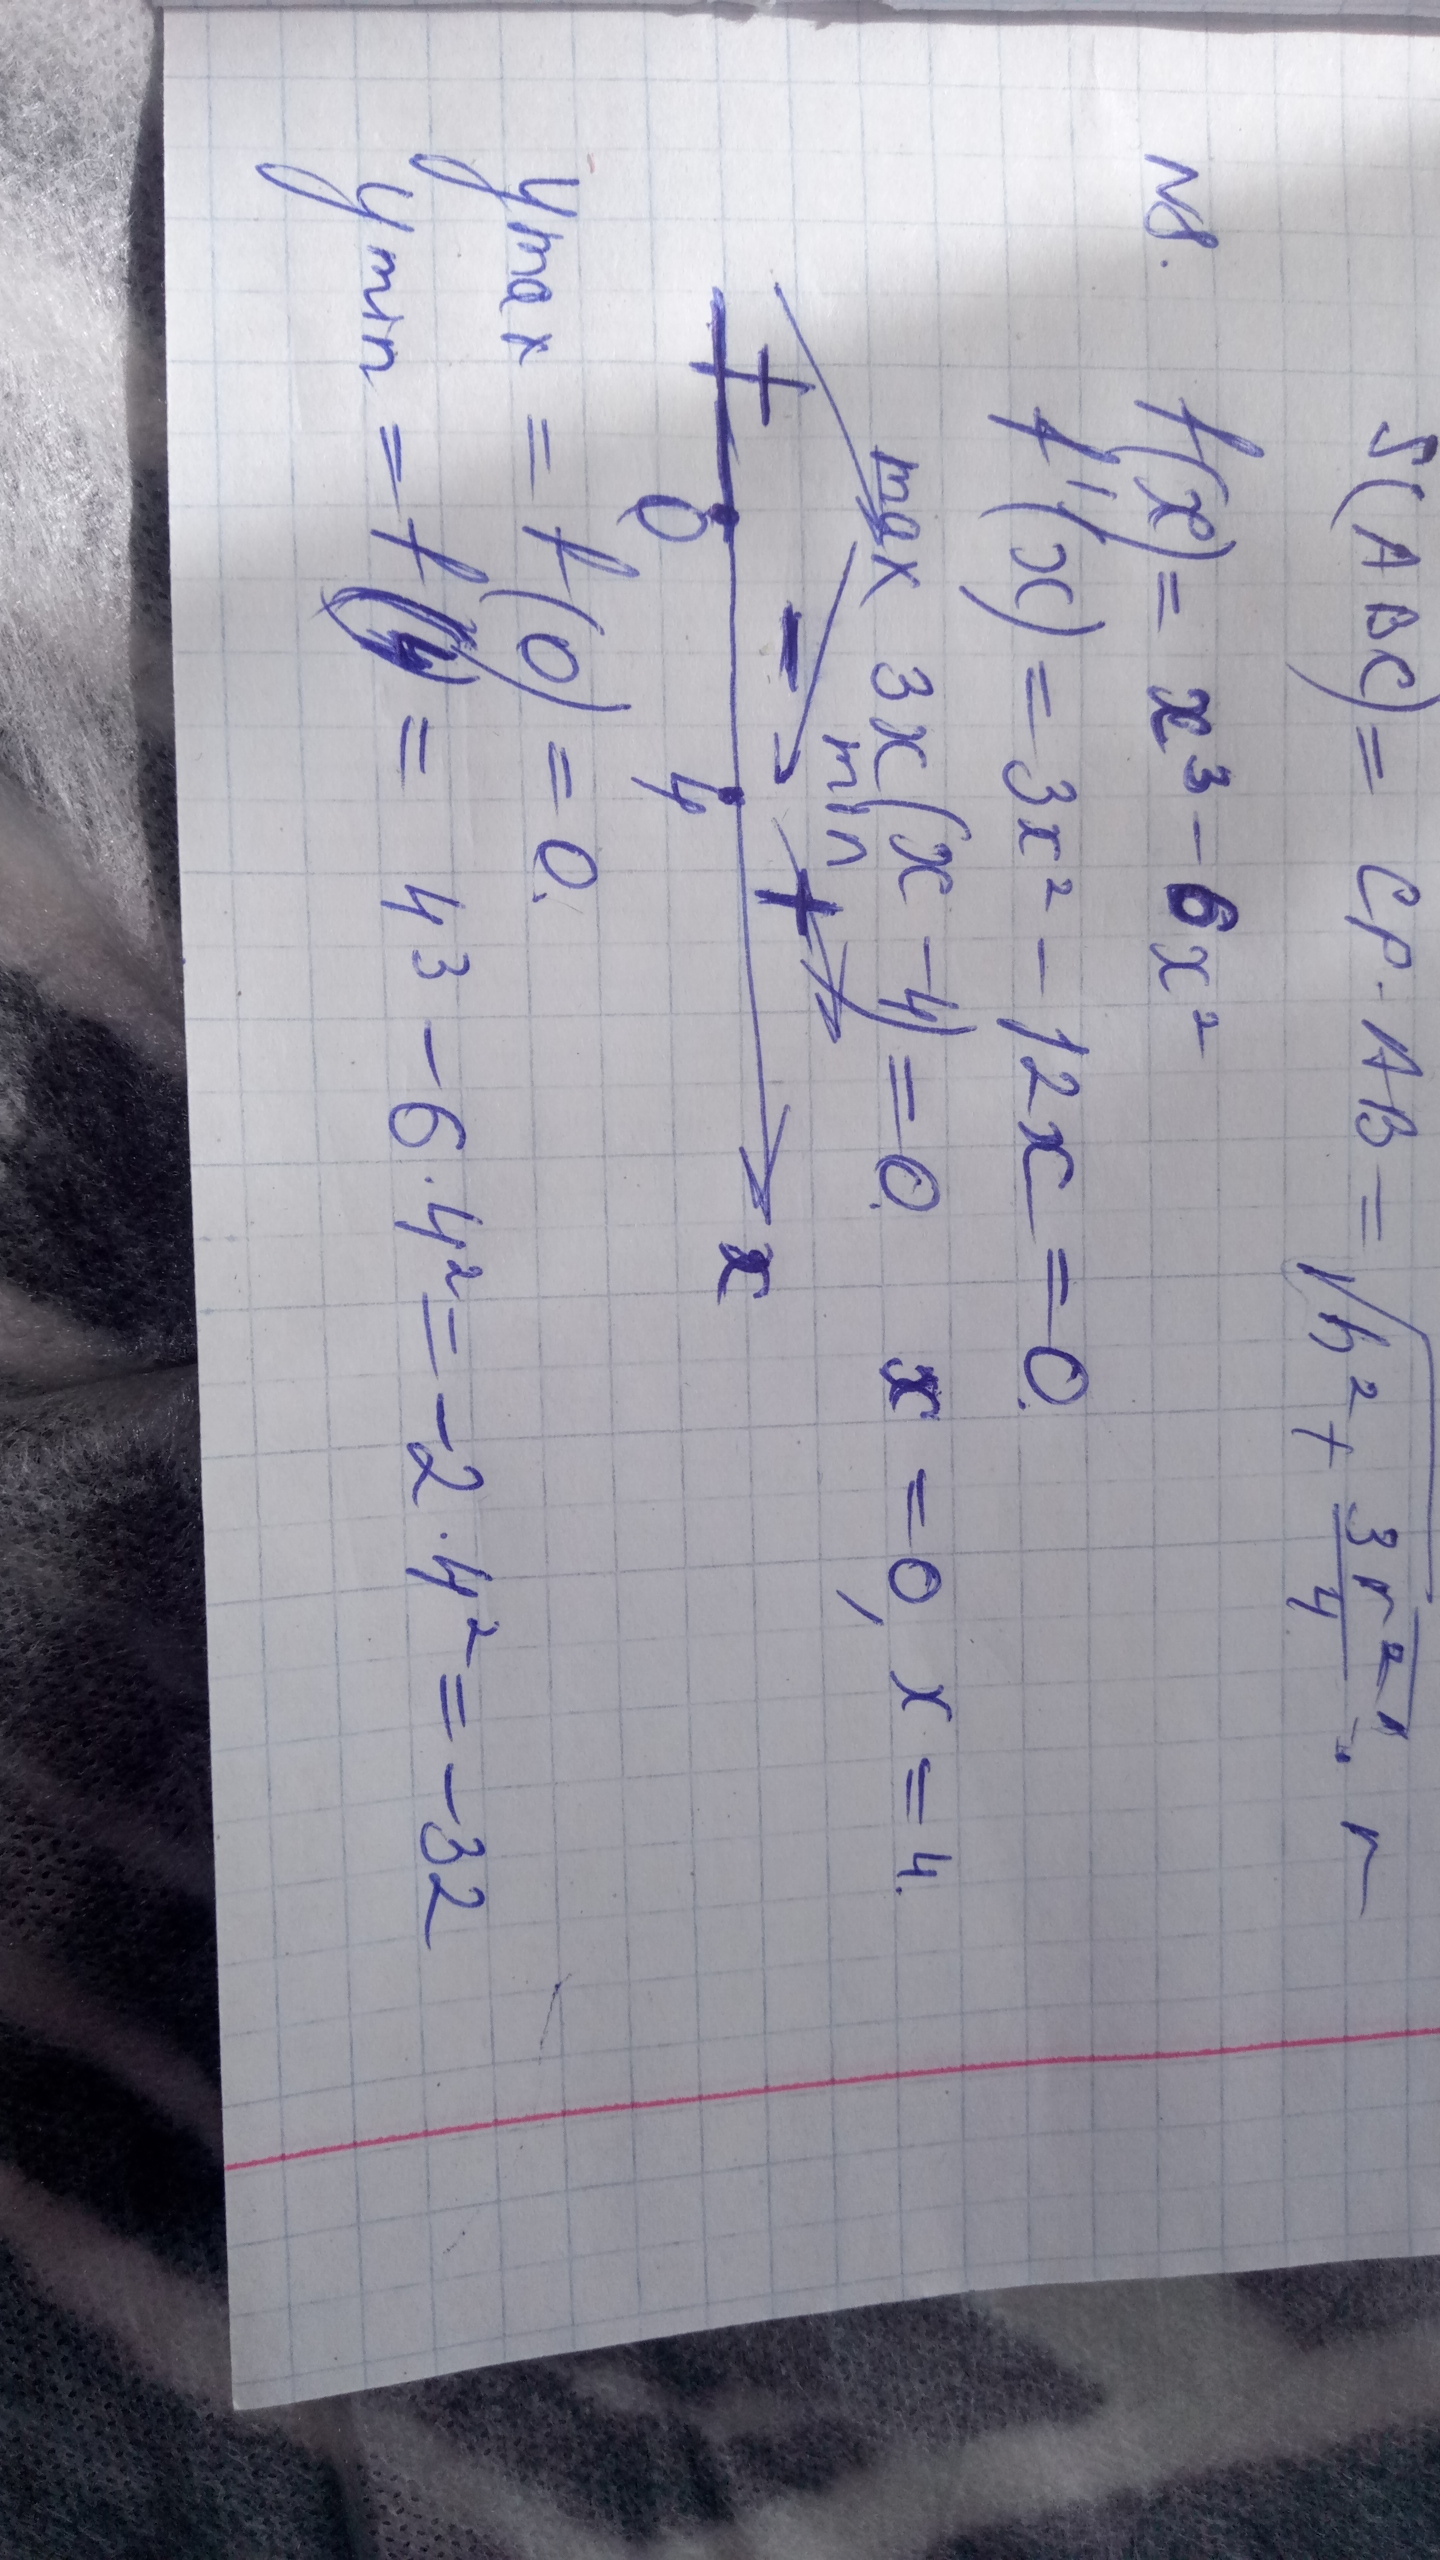 S(ABC) = CP·AB = √(h² + 3r²/4) · r
N8. f(x) = x³ - 6x²
f'(x) = 3x² - 12x = 0.
3x(x - 4) = 0. x = 0, x = 4.
max min
+ - +
0 4 x
ymax = f(0) = 0.
ymin = f(4) = 4³ - 6·4² = -2·4² = -32